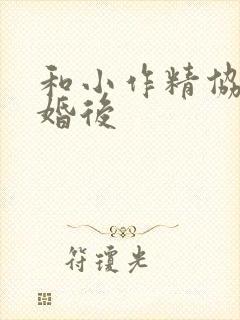 和小作精協
婚後
符瓊光